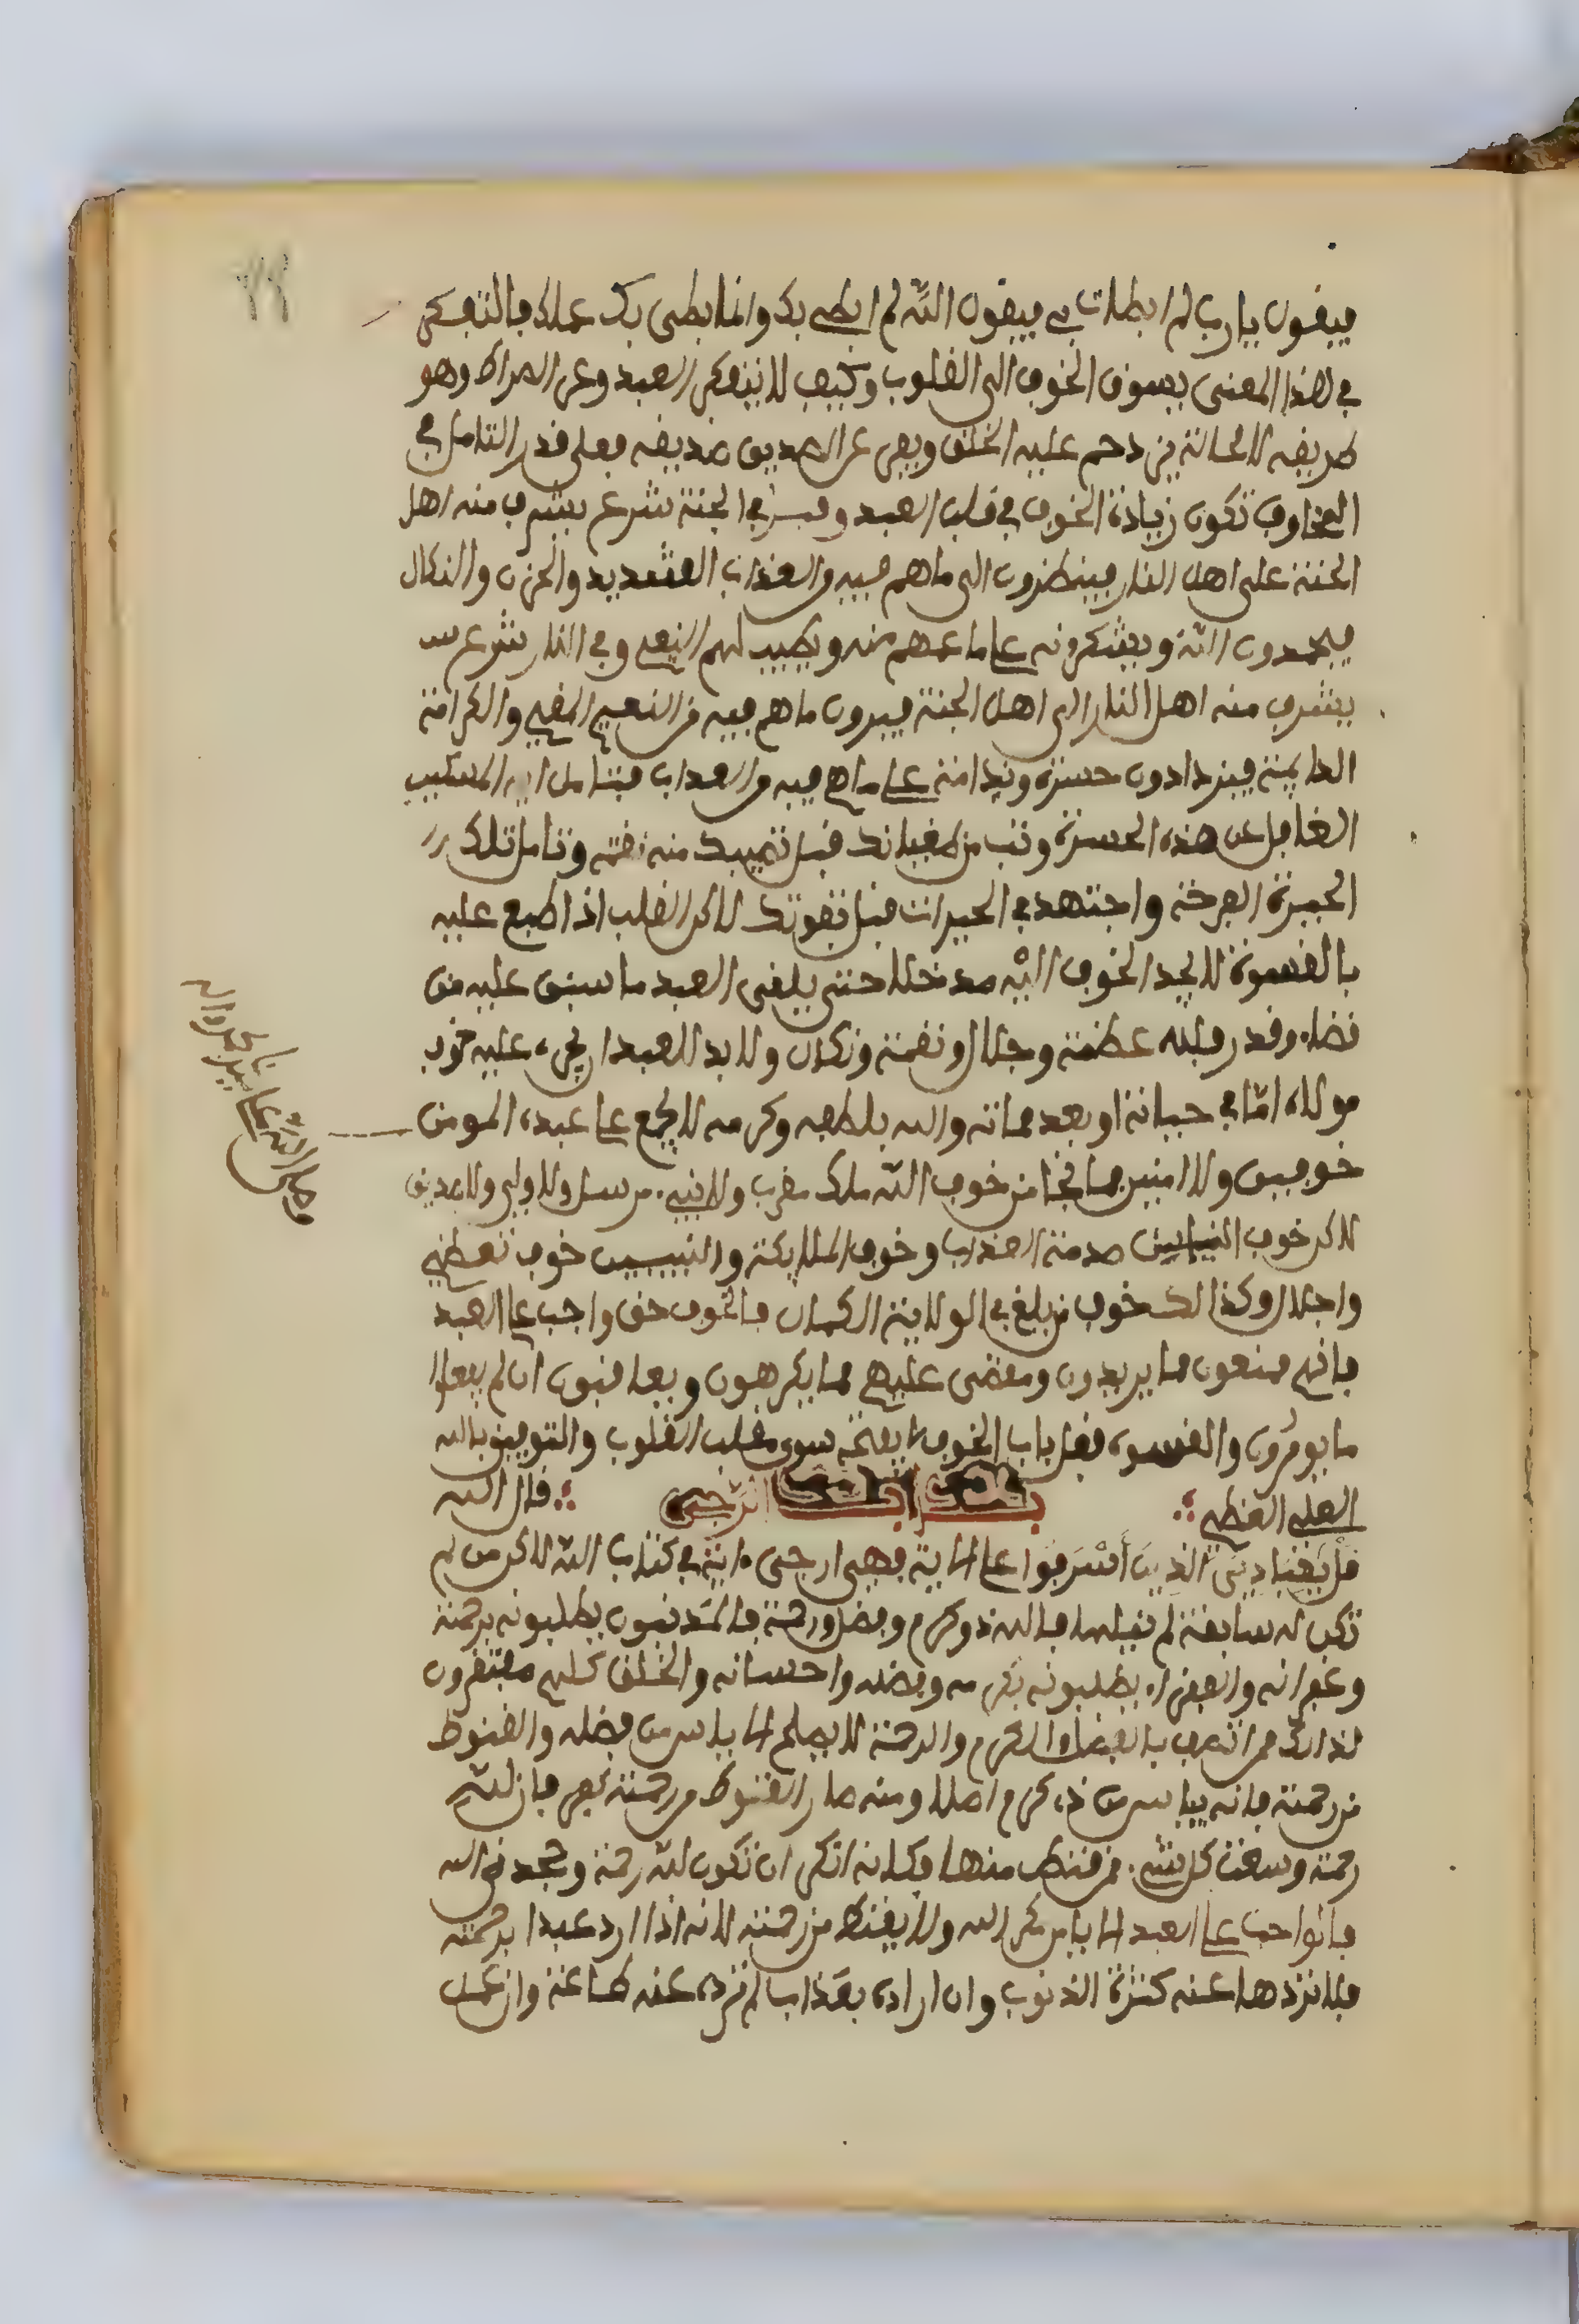 فيقول يا رب لم ابطات بي فيقول الله لم ابطى بك وانما ابطى بك عملك فالتفكر
في هذا المعنى يسوق الخوف الى القلوب وكيف لا يتفكر العبد وعن الصراط وهو
طريقه لا محالة يزدحم عليه الخلق ويفر عن الصديق صديقه فعلى قدر التامل في
المخاوف تكون زيادة الخوف في قلب العبد وقيل في الجنة شرع يشرف منه اهل
الجنة على اهل النار فينظرون الى ما هم فيه من العذاب الشديد والحزن والنكال
فيحمدون الله ويشكرونه على ما عمهم منه ويطيب لهم النعيم وفي النار شرع
يشرف منه اهل النار الى اهل الجنة فيرون ما هم فيه من النعيم المقيم والكرامة
الدايمة فيزدادون حسرة وندامة على ما هم فيه من العذاب فتامل ايه المسكين
الغافل عن هذه الحسرة وتب من طغيانك قبل تصيبك منه نقمه وتامل تلك
الحيرة الفرحة واجتهد في الخيرات قبل تفوتك لاكن القلب اذا طبع عليه
بالقسوة لا يجد الخوف اليه مدخلا حتى يلقى العبد ما سبق عليه من
قضاء وقدر ولله عظمة وجلال ونقمة ونكال ولا بد للعبد ان يجرى عليه خوف
مولاه امّا في حياته او بعد مماته والله بلطفه وكرمه لا يجمع على عبده المومن
خوفين ولا امنين فما نجا من خوف الله ملك مقرب ولا نبيء مرسل ولا ولي ولا صديق
لاكن خوف صدمة العذاب وخوف الملايكة والنبيين خوف تعظيم
واجلال وكذالك خوف من بلغ في الولاية الكمال فالخوف حق واجب على العبد
فانهم منعون مما يريدون ومقضى عليهم مما يكرهون ويعاقبون ان لم يفعلوا
ما يومرون والقسوه قفل باب الخوف لا يفتحه سوى مقلب القلوب والتوفيق بالله
العلي العظيم ؞ الرجى ؞ قال الله
قل يعبادي الذين أسرفوا على الاية فهي ارجى ءاية في كتاب الله لاكن من لم
تكن له سابقة لم يقبلها فالله ذو كرم وفضل ورحمة فالمذنبون يطلبونه برحمته
وغفرانه والفقراء يطلبونه بكرمه وفضله واحسانه والخلق كلهم مفتقرون
لذالك فمن اتصف بالفضل والكرم والرحمة لا يصلح الاياس من فضله والقنوط
من رحمته فانه ييأس من ذي كرم اصلا ومنه صار القنوط من رحمته كفر فان لله
رحمة وسعت كل شيء فمن قنط منها فكانه انكر ان تكون لله رحمة وجحد في الله
فالواجب على العبد الا يامن مكر الله ولا يقنط من رحمته لانه اذا اراد عبدا برحمته
فلا تردها عنه كثرة الذنوب وان اراده بعذاب لم ترده عنه طاعة وان عمل
وصلى الله على سيدنا محمد واله